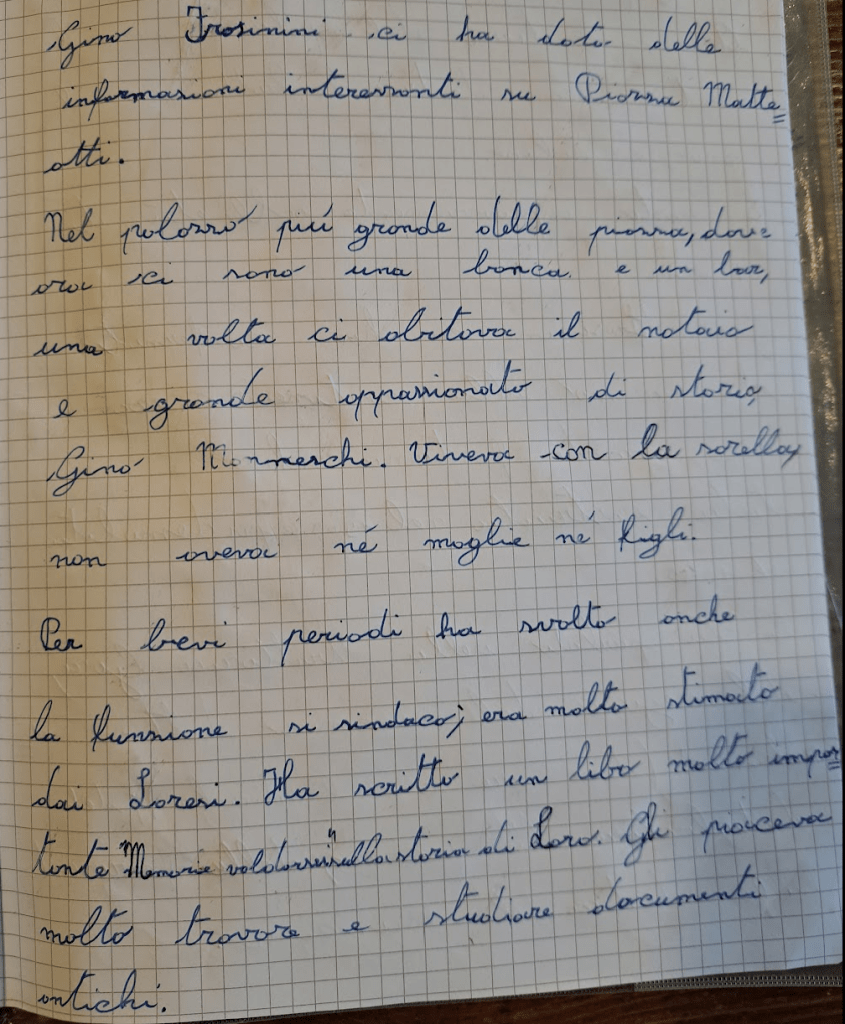 Gino Frosinini ci ha dato delle
informazioni interessanti su Piazza Matte=
otti.
Nel palazzo più grande della piazza, dove
ora ci sono una banca e un bar,
una volta ci abitava il notaio
e grande appassionato di storia,
Gino Mormeschi. Viveva con la sorella,
non aveva né moglie né figli.
Per brevi periodi ha svolto anche
la funzione si sindaco; era molto stimato
dai Loresi. Ha scritto un libo molto impor=
tante "Memorie valdarnesi" sulla storia di Loro. Gli piaceva
molto trovare e studiare documenti
antichi.